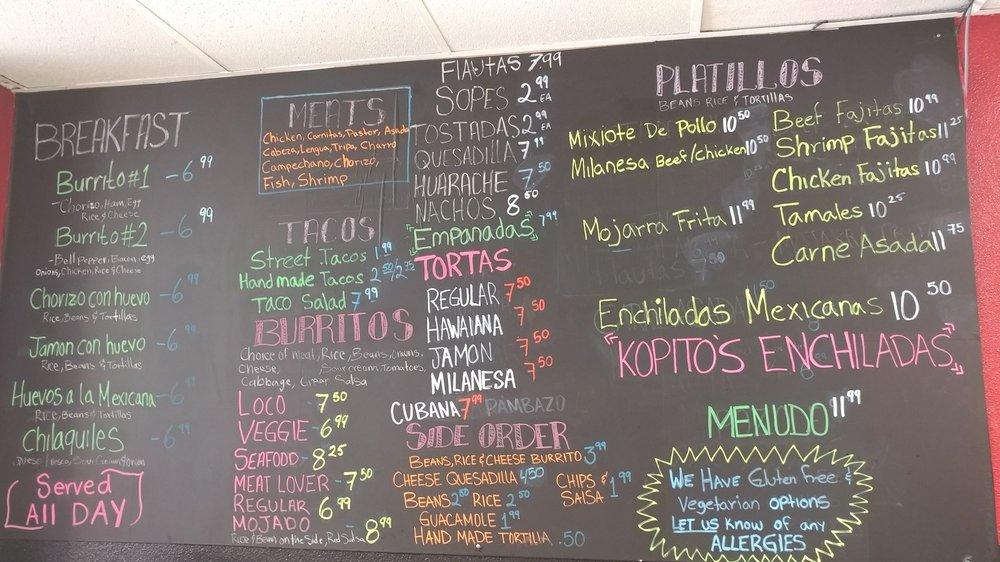 BREAKFAST
Burrito#1 -6 99
-Chorizo, Ham, Egg
Rice & Cheese
Burrito#2 -6 99
-Bell Pepper, Bacon, egg
Onions, Chicken, Rice & Cheese
Chorizo con huevo -6 99
Rice, Beans & Tortillas
Jamon con huevo -6 99
Rice, Beans & Tortillas
Huevos a la Mexicana -6
Rice, Beans & Tortillas
Chilaquiles -6 99
Served
All DAY
MEATS
Chicken, Carnitas, Pastor, Asada
Cabeza, Lengua, Tripa, Charro
Campechano, Chorizo,
Fish, Shrimp
TACOS
Street Tacos 1 99
Hand made Tacos 2 50/2 75
Taco Salad 7 99
BURRITOS
Choice of meat, Rice, Beans, Onions,
Cheese, Sour cream, Tomatoes,
Cabbage, Salsa
LOCO -7 50
VEGGIE -6 99
SEAFOOD -8 25
MEAT LOVER -7 50
REGULAR 6 99
MOJADO -8 99
Rice & Bean on the Side, Red Salsa
FlAUTAS 7 99
SOPES 2 99 EA
TOSTADAS 2 99 EA
QUESADILLA 7 99
HUARACHE 7 50
NACHOS 8 50
"Empanadas" 7 99
TORTAS
REGULAR 7 50
HAWAIANA 7 50
JAMON 7 50
MILANESA 7 50
CUBANA 7 99 PAMBAZO
SIDE ORDER
BEANS, RICE & CHEESE BURRITO 3 99
CHEESE QUESADILLA 4 50
BEANS 2 50 RICE 2 50
GUACAMOLE 1 99
HAND MADE TORTILLA .50
CHIPS &
SALSA 1 99
PLATILLOS
BEANS RICE & TORTILLAS
Mixiote De Pollo 10 50
Milanesa Beef/Chicken 10 50
Mojarra Frita 11 99
Beef Fajitas 10 99
Shrimp Fajitas 11 25
Chicken Fajitas 10 99
Tamales 10 25
Carne Asada 11 75
Enchiladas Mexicanas 10 50
"KOPITO'S ENCHILADAS"
MENUDO 11 99
WE HAVE Gluten free &
Vegetarian OPTIONS
LET US Know of any
ALLERGIES